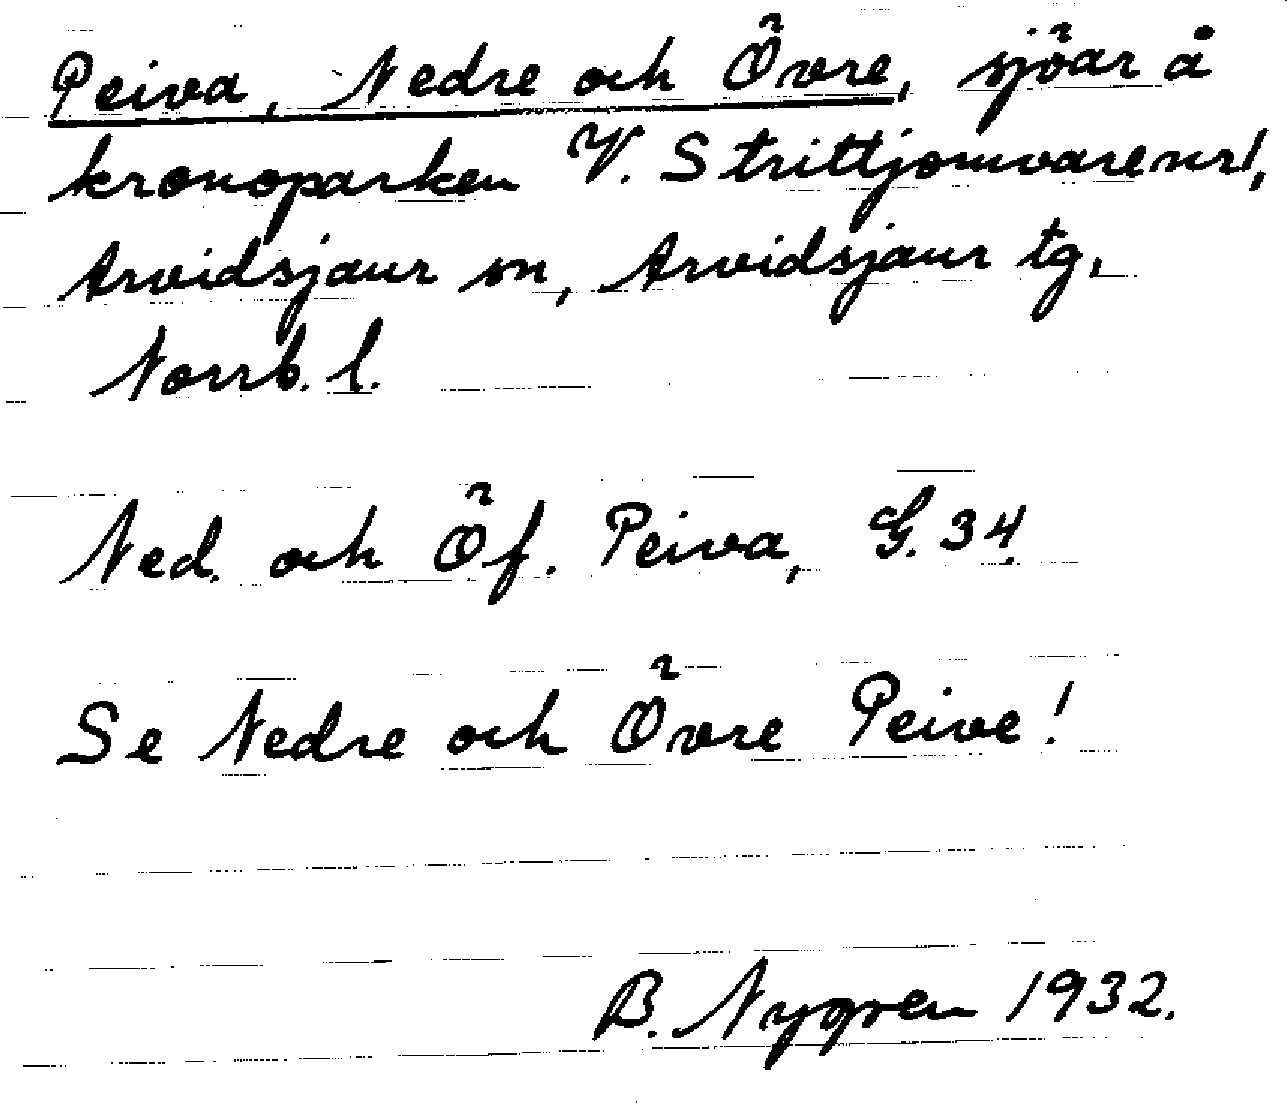 Peiva, Nedre och Övre, sjöar å
kronoparken V. Strittjomvare nr 1,
Arvidsjaur sn, Arvidsjaur tg,
Norrb. l.
Ned. och Öf. Peiva, G. 34.
Se Nedre och Övre Peive!
B. Nygren 1932.